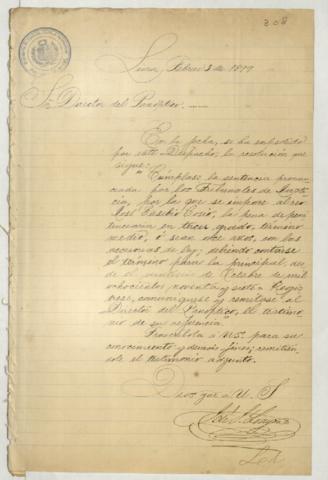 308
Lima, Febrero 3 de 1899
Sr. Director del Panóptico.
Con la fecha, se ha expedido
por este Despacho, la resolución que
sigue:
"Cúmplase la sentencia pronun
ciada por los Tribunales de Justi
cia, por la que se impone al reo
José Eusebio Cosio, la pena de peni
tenciaría en tercer grado, término
medio, ó sean once años, con las
accesorias de ley, debiendo contarse
el término para la principal, des
de el de Octubre de mil
ochocientos noventa y siete. Regís
trese, comuníquese y remítase al
Director del Panóptico, el testimo
nio de su referencia"
Trascríbola á US. para su
conocimiento y demás fines, remitién
dole el testimonio adjunto.
Dios gue á U. S.